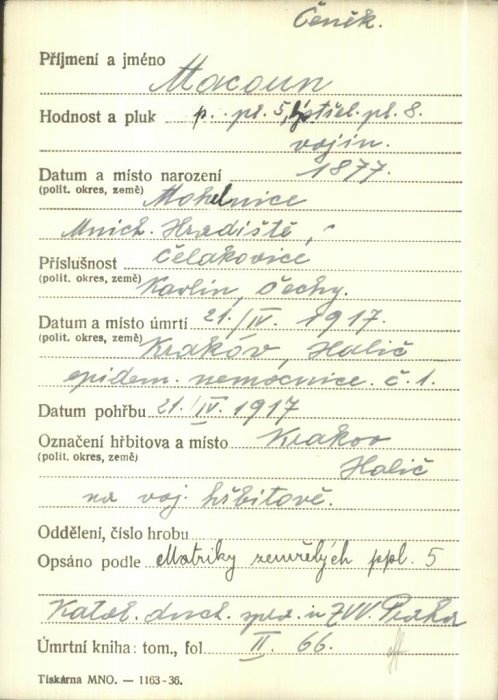 Čeněk.
Příjmení a jméno
Macoun
Hodnost a pluk p. pl. 5, střel. pl. 8.
vojin.
Datum a místo narození 1877.
(polit. okres, země) Mohelnice
Mnich. Hradiště,
Příslušnost Čelakovice
(polit. okres, země) Karlín, Čechy.
Datum a místo úmrtí 21./IV. 1917.
(polit. okres, země) Krakóv, Halič
epidem. nemocnice. č. 1.
Datum pohřbu 21./IV. 1917
Označení hřbitova a místo Krakov
(polit. okres, země) Halič
na voj. hřbitově.
Oddělení, číslo hrobu
Opsáno podle Matriky zemřelých ppl. 5
Katol. duch. spr. u ZVV. Praha
Úmrtní kniha: tom., fol. II. 66.
Tiskárna MNO. — 1163-36.